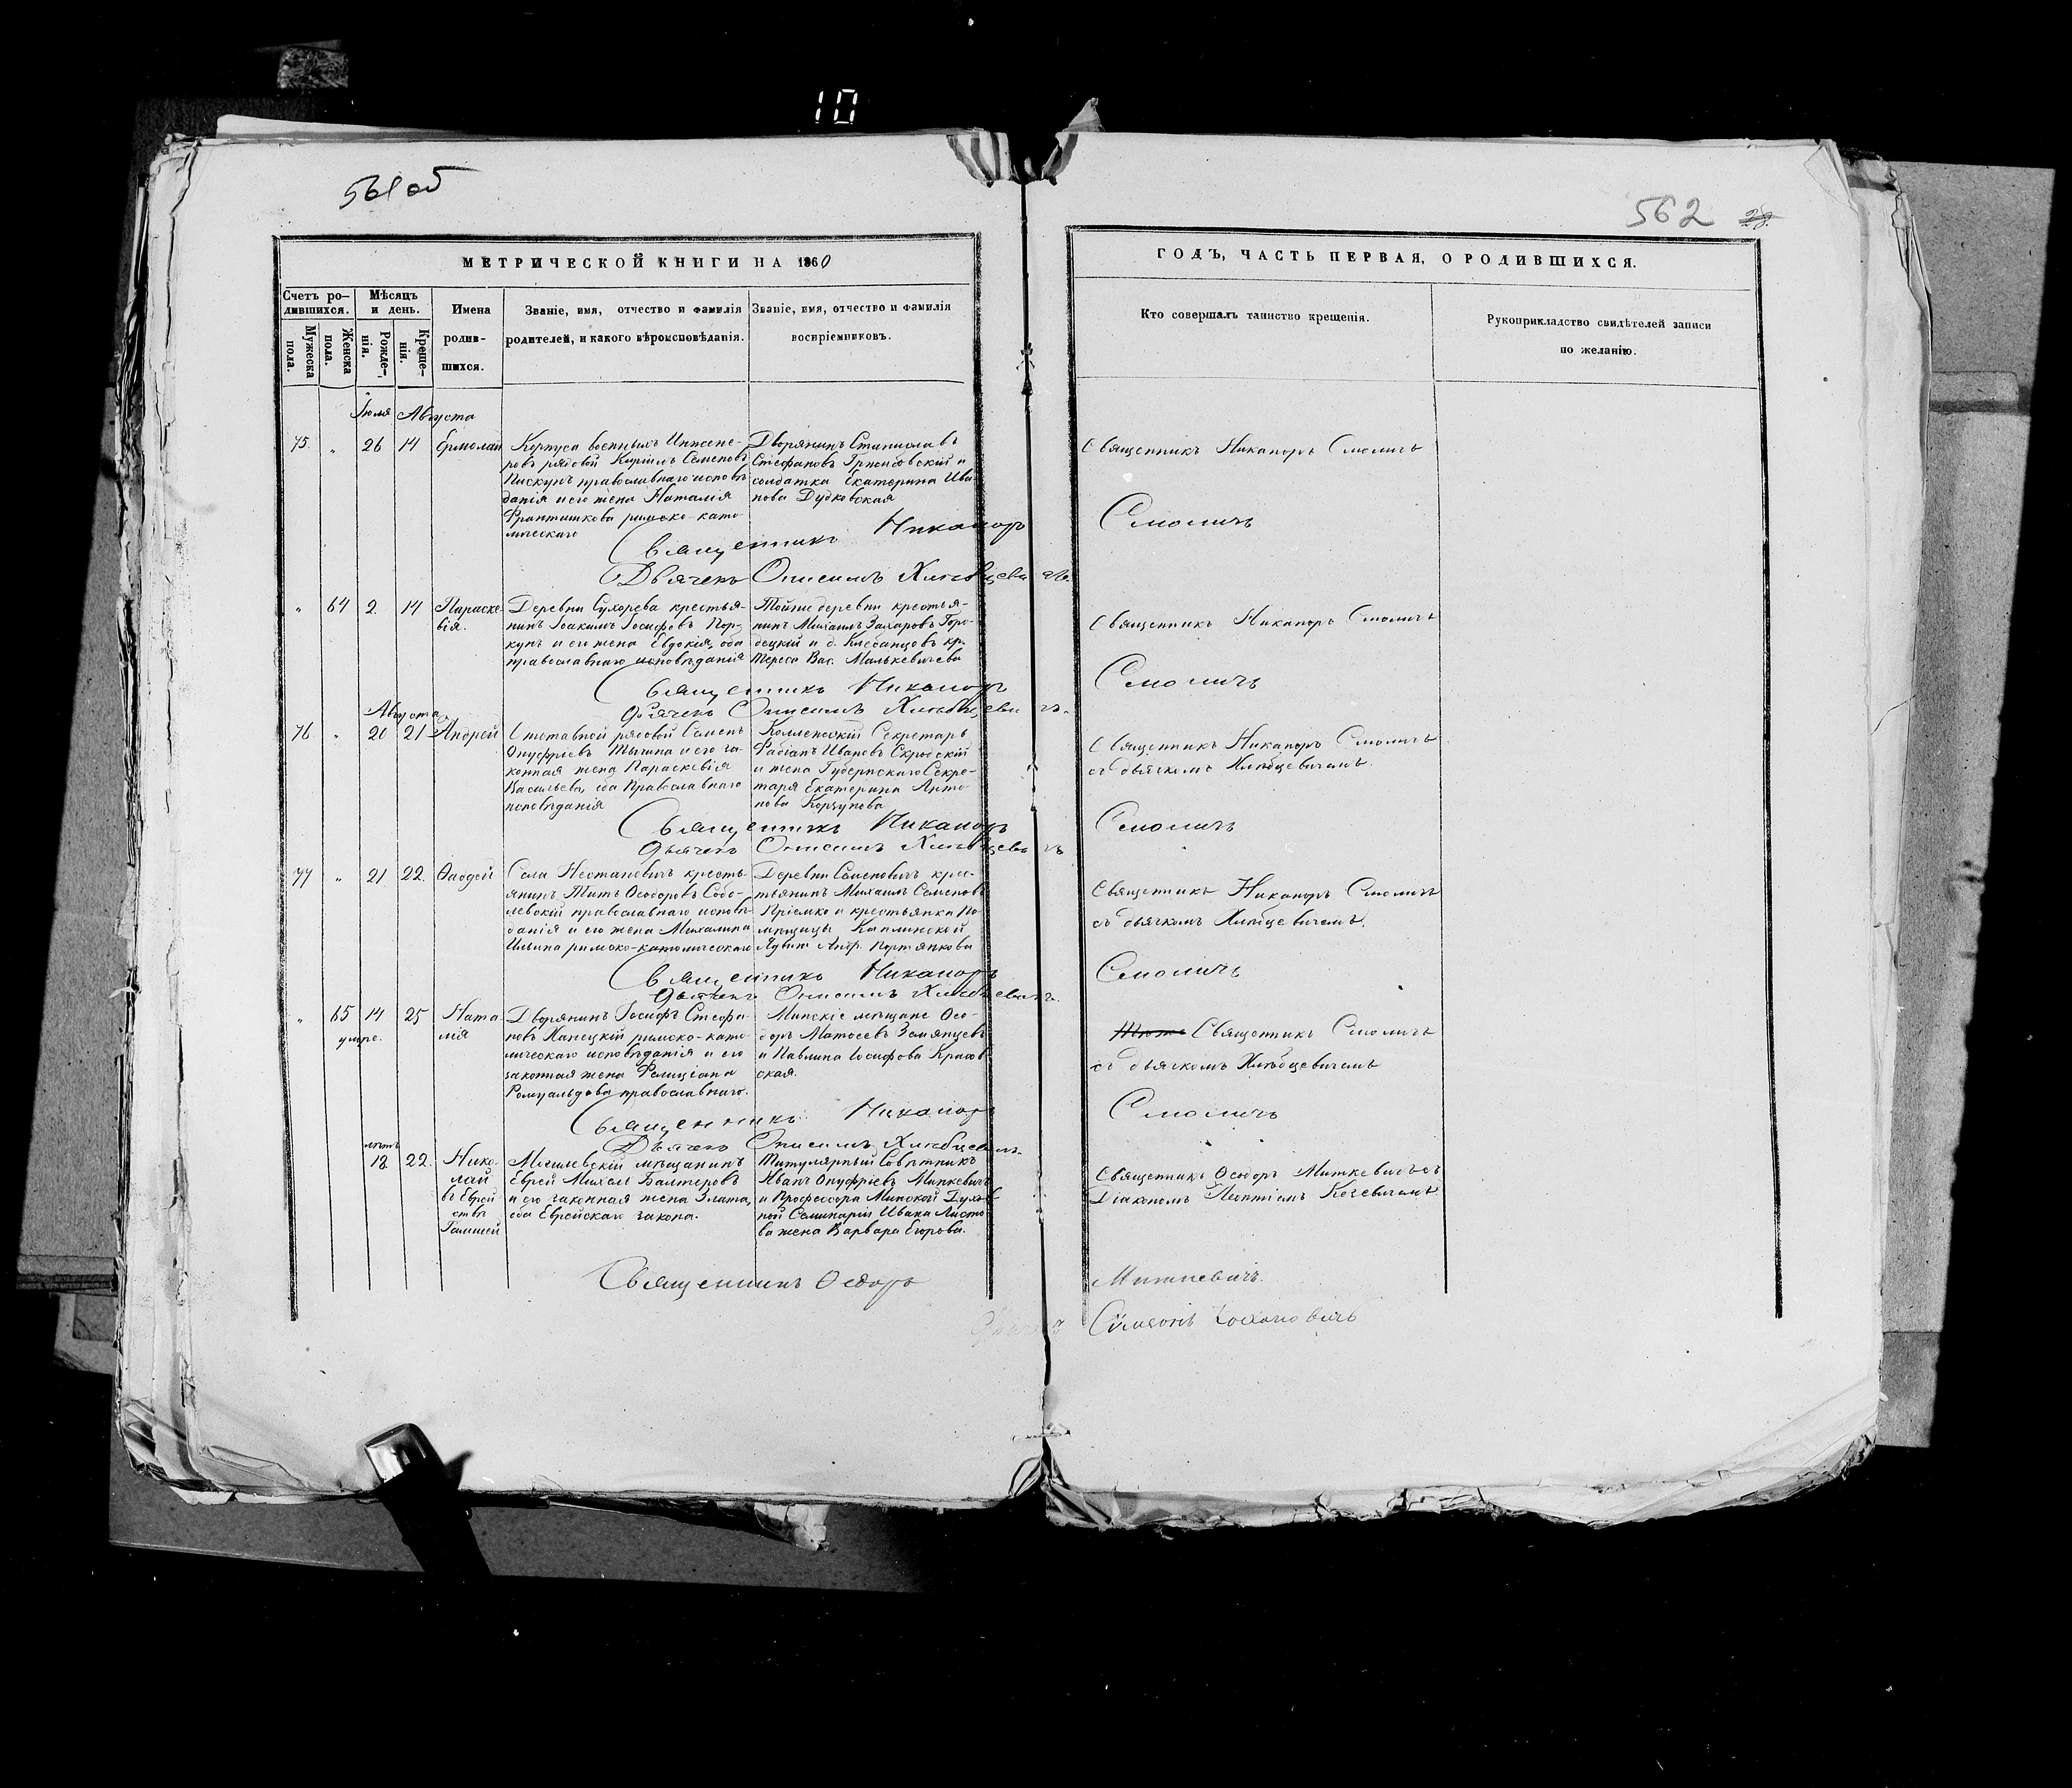 10
561 об
562 28.
МЕТРИЧЕСКОЙ КНИГИ НА 1860
Счетъ ро-
дившихся.
Мужеска пола.
Женска пола.
Мѣсяцъ
и день.
Рожде-
нія.
Креще-
нія.
Имена
родив-
шихся.
Званіе, имя, отчество и фамилія
родителей, и какого вѣроисповѣданія.
Званіе, имя, отчество и фамилія
воспріемниковъ.
ГОДЪ, ЧАСТЬ ПЕРВАЯ, О РОДИВШИХСЯ.
Кто совершалъ таинство крещенія.
Рукоприкладство свидѣтелей записи
по желанію.
Іюля Августа
75. " 26 14 Ермолай
Корпуса военныхъ Инжене-
ровъ рядовой Кирилъ Семеновъ
Пискунъ православнаго исповѣ
данія и его жена Наталія
Францишкова римско-като-
лическаго
Дворянинъ Станиславъ
Стефановъ и
солдатка Екатерина Ива
нова Дудковская
Священникъ Никаноръ Смоличъ
Священникъ Никаноръ Смоличъ
Дьячекъ Онисимъ Хлѣбцевичъ.
" 64 2. 14 Параске-
вія.
Деревни Сухорева крестья-
нинъ Іоакимъ Іосифовъ Пор-
кунъ и его жена Евдокія, оба
православнаго исповѣданія
Тойже деревни крестья-
нинъ Михаилъ Захаровъ Горо-
децкій и д. кр.
Тереса Вас. Малькевичева
Священникъ Никаноръ Смоличъ
Священникъ Никаноръ Смоличъ
Дьячекъ Онисимъ Хлѣбцевичъ.
Августа
76 " 20 21 Андрей
рядовой Семенъ
Онуфріевъ и его за-
конная жена Параскевія
Васильева, оба Православнаго
исповѣданія
Коллежскій Секретарь
Фабіанъ Ивановъ Скродскій
и жена Губернскаго Секре-
таря Екатерина Анто
нова Корзунова
Священникъ Никаноръ Смоличъ
съ дьячкомъ Хлѣбцевичемъ.
Священникъ Никаноръ Смоличъ
Дьячекъ Онисимъ Хлѣбцевичъ
77 " 21 22. Ѳаддей
Села кресть-
янинъ Титъ Ѳеодоровъ Собо-
левскій православнаго исповѣ-
данія и его жена Михалина
Ильина римско-католическаго
Деревни Семеновичъ крес-
тьянинъ Михаилъ Семеновъ
Пріемко и крестьянка По-
мѣщицы
Священникъ Никаноръ Смоличъ
съ дьячкомъ Хлѣбцевичемъ.
Священникъ Никаноръ Смоличъ
Дьячекъ Онисимъ Хлѣбцевичъ.
" 65 14 25 Ната-
лія
умре.
Дворянинъ Іосифъ Стефа-
новъ римско-като-
лическаго исповѣданія и его
законная жена Фелиціана
Ромуальдова православнаго.
Минскіе мѣщане Ѳео-
доръ Матѳеевъ Землнцевъ
и Павлина Іосифова
ская.
Священникъ Смоличъ
съ дьячкомъ Хлѣбцевичемъ
Священникъ Никаноръ Смоличъ
Дьячекъ Онисимъ Хлѣбцевичъ.
лѣтъ
18. 22. Нико-
лай
въ Еврей
ствѣ
Могилевскій мѣщанинъ
Еврей Михель Балтеровъ
и его законная жена Злата,
оба Еврейскаго закона.
Титулярный Совѣтникъ
Иванъ Онуфріевъ Минкевичъ
и Профессора Минской Духов
ной Семинаріи Ивана Листо
ва жена Варвара Егорова.
Священникъ Ѳеодоръ Миткевичъ съ
Діакономъ
Священникъ Ѳеодоръ Миткевичъ.